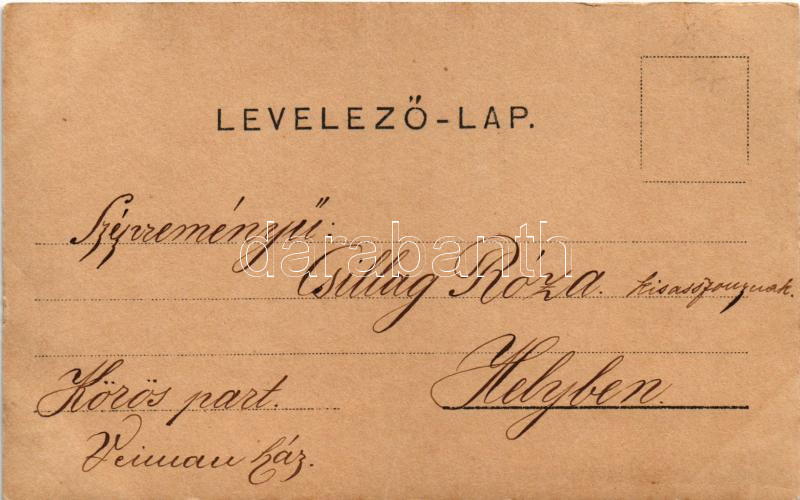 LEVELEZŐ-LAP.
Szépreményű:
Csillag Róza. kisasszonynak.
Helyben.
Körös part.
Veiman ház.
darabanth